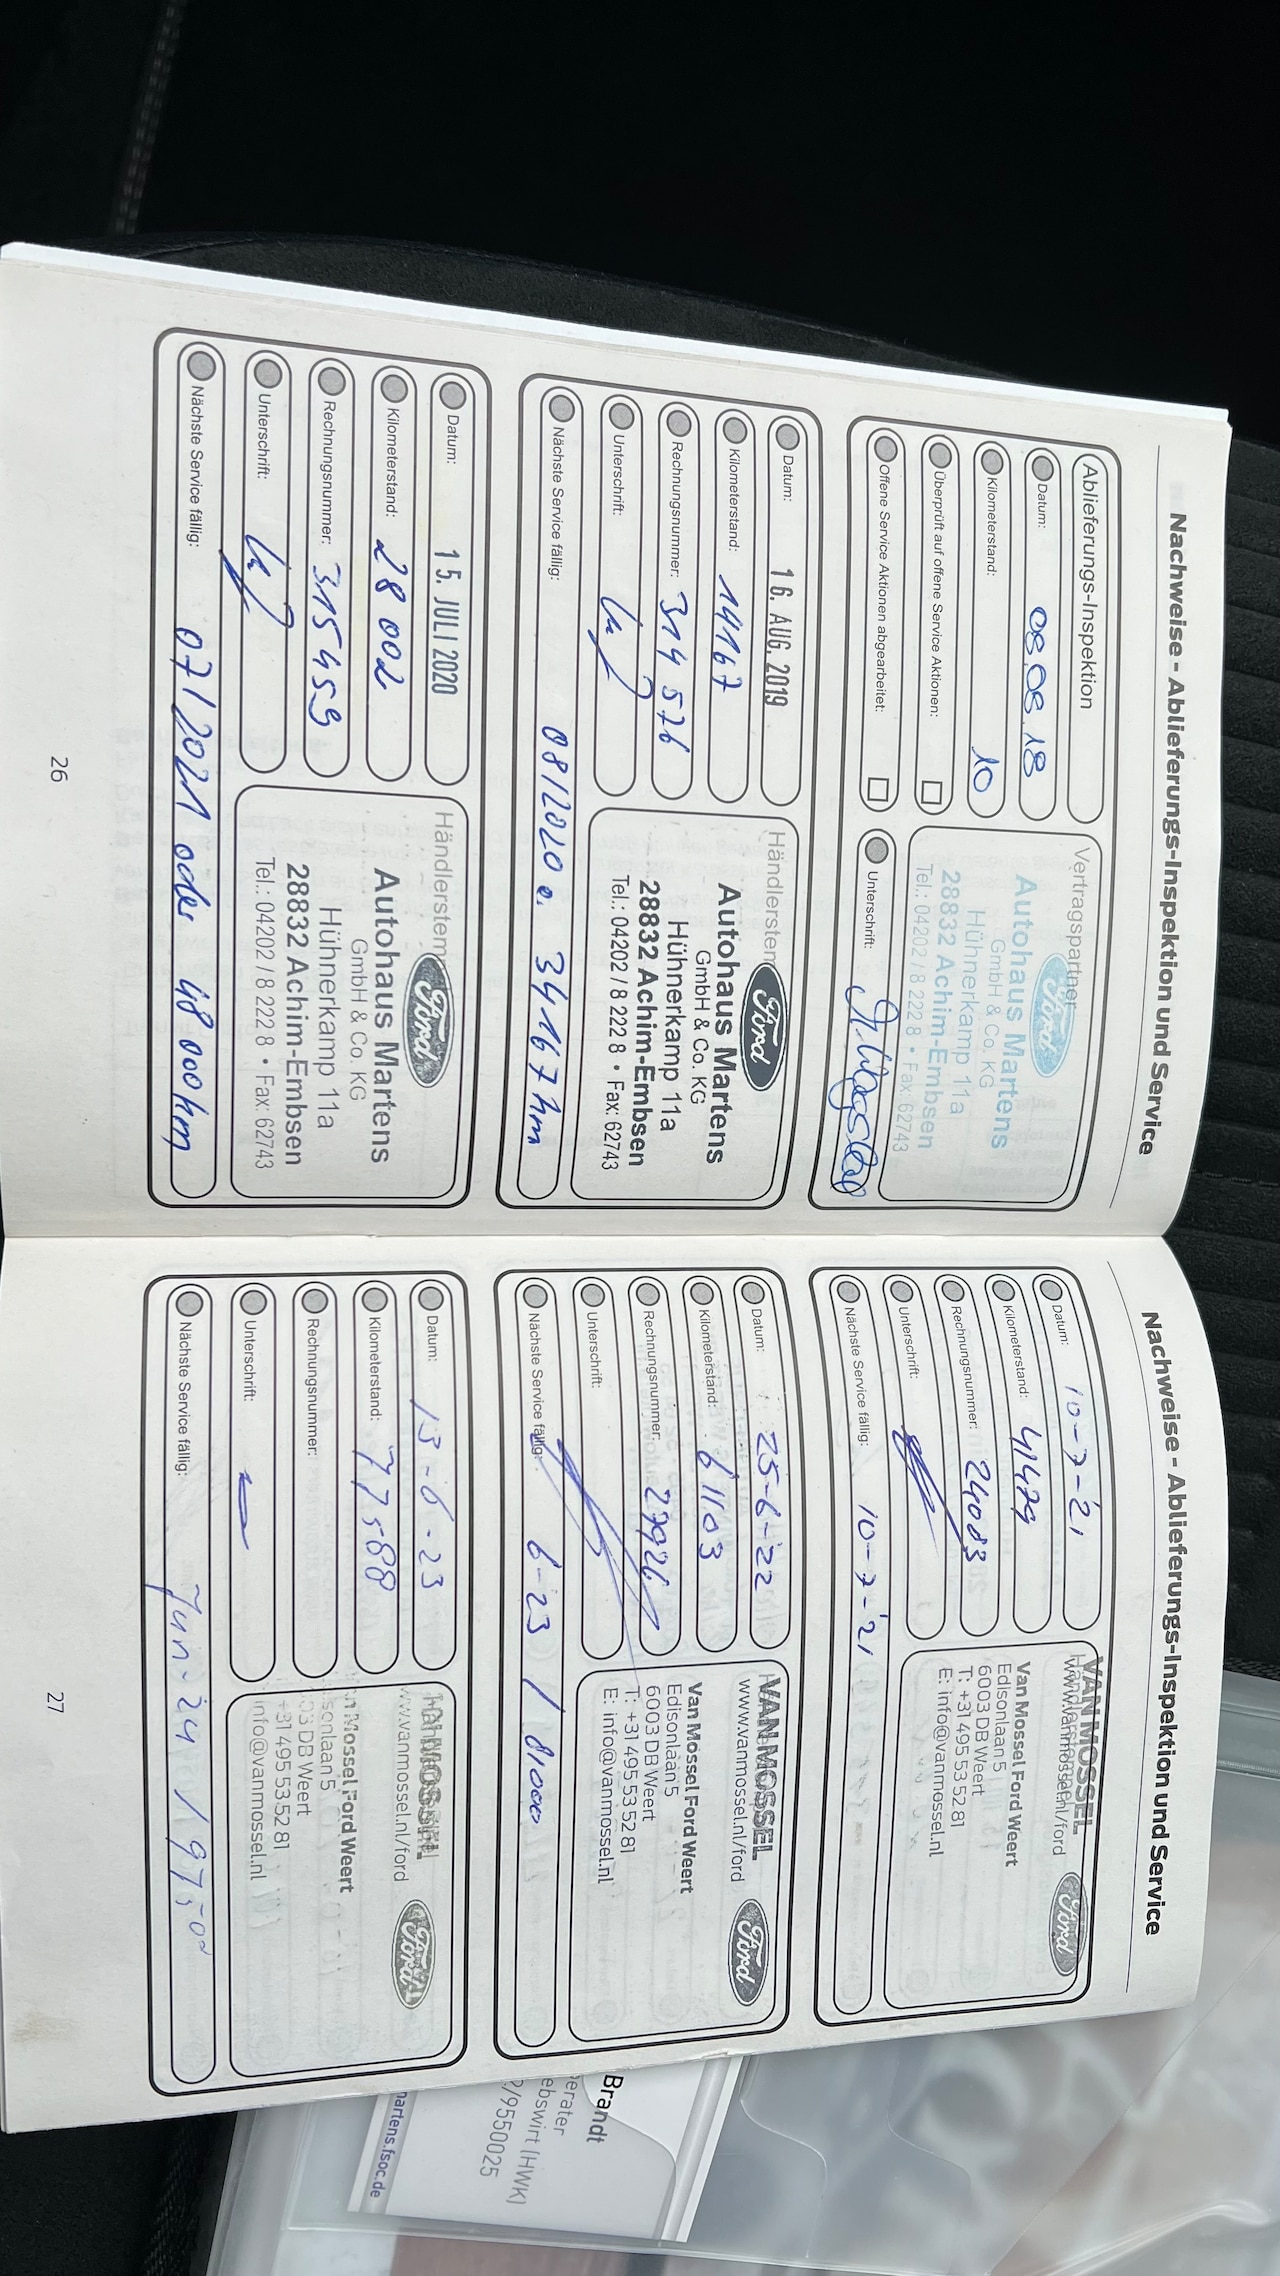 Nachweise - Ablieferungs-Inspektion und Service
Ablieferungs-Inspektion
Datum: 08.08.18
Kilometerstand: 10
Überprüft auf offene Service Aktionen:
Offene Service Aktionen abgearbeitet:
Vertragspartner
Ford
Autohaus Martens
GmbH & Co. KG
Hühnerkamp 11a
28832 Achim-Embsen
Tel.: 04202 / 8 222 8 • Fax: 62743
Unterschrift:
Datum: 16. AUG. 2019
Kilometerstand: 14167
Rechnungsnummer: 314 576
Unterschrift:
Händlerstem
Ford
Autohaus Martens
GmbH & Co. KG
Hühnerkamp 11a
28832 Achim-Embsen
Tel.: 04202 / 8 222 8 • Fax: 62743
Nächste Service fällig: 08/2020 o. 34167 km
Datum: 15. JULI 2020
Kilometerstand: 28 002
Rechnungsnummer: 315 459
Unterschrift:
Händlerstem
Ford
Autohaus Martens
GmbH & Co. KG
Hühnerkamp 11a
28832 Achim-Embsen
Tel.: 04202 / 8 222 8 • Fax: 62743
Nächste Service fällig: 07/2021 oder 48 000 km
26
Nachweise - Ablieferungs-Inspektion und Service
Datum: 10-7-'21
Kilometerstand: 41479
Rechnungsnummer: 24083
Unterschrift:
VAN MOSSEL
www.vanmossel.nl/ford
Ford
Van Mossel Ford Weert
Edisonlaan 5
6003 DB Weert
T: +31 495 53 52 81
E: info@vanmossel.nl
Nächste Service fällig: 10-7-'21
Datum: 25-6-'22
Kilometerstand: 61103
Rechnungsnummer: 27926
Unterschrift:
VAN MOSSEL
www.vanmossel.nl/ford
Ford
Van Mossel Ford Weert
Edisonlaan 5
6003 DB Weert
T: +31 495 53 52 81
E: info@vanmossel.nl
Nächste Service fällig: 6-23 / 81000
Datum: 13-6-23
Kilometerstand: 77588
Rechnungsnummer:
Unterschrift:
www.vanmossel.nl/ford
Ford
n Mossel Ford Weert
isonlaan 5
03 DB Weert
+31 495 53 52 81
info@vanmossel.nl
Nächste Service fällig: Jun-24 /
27
Brandt
erater
ebswirt (HWK)
2/9550025
martens.fsoc.de